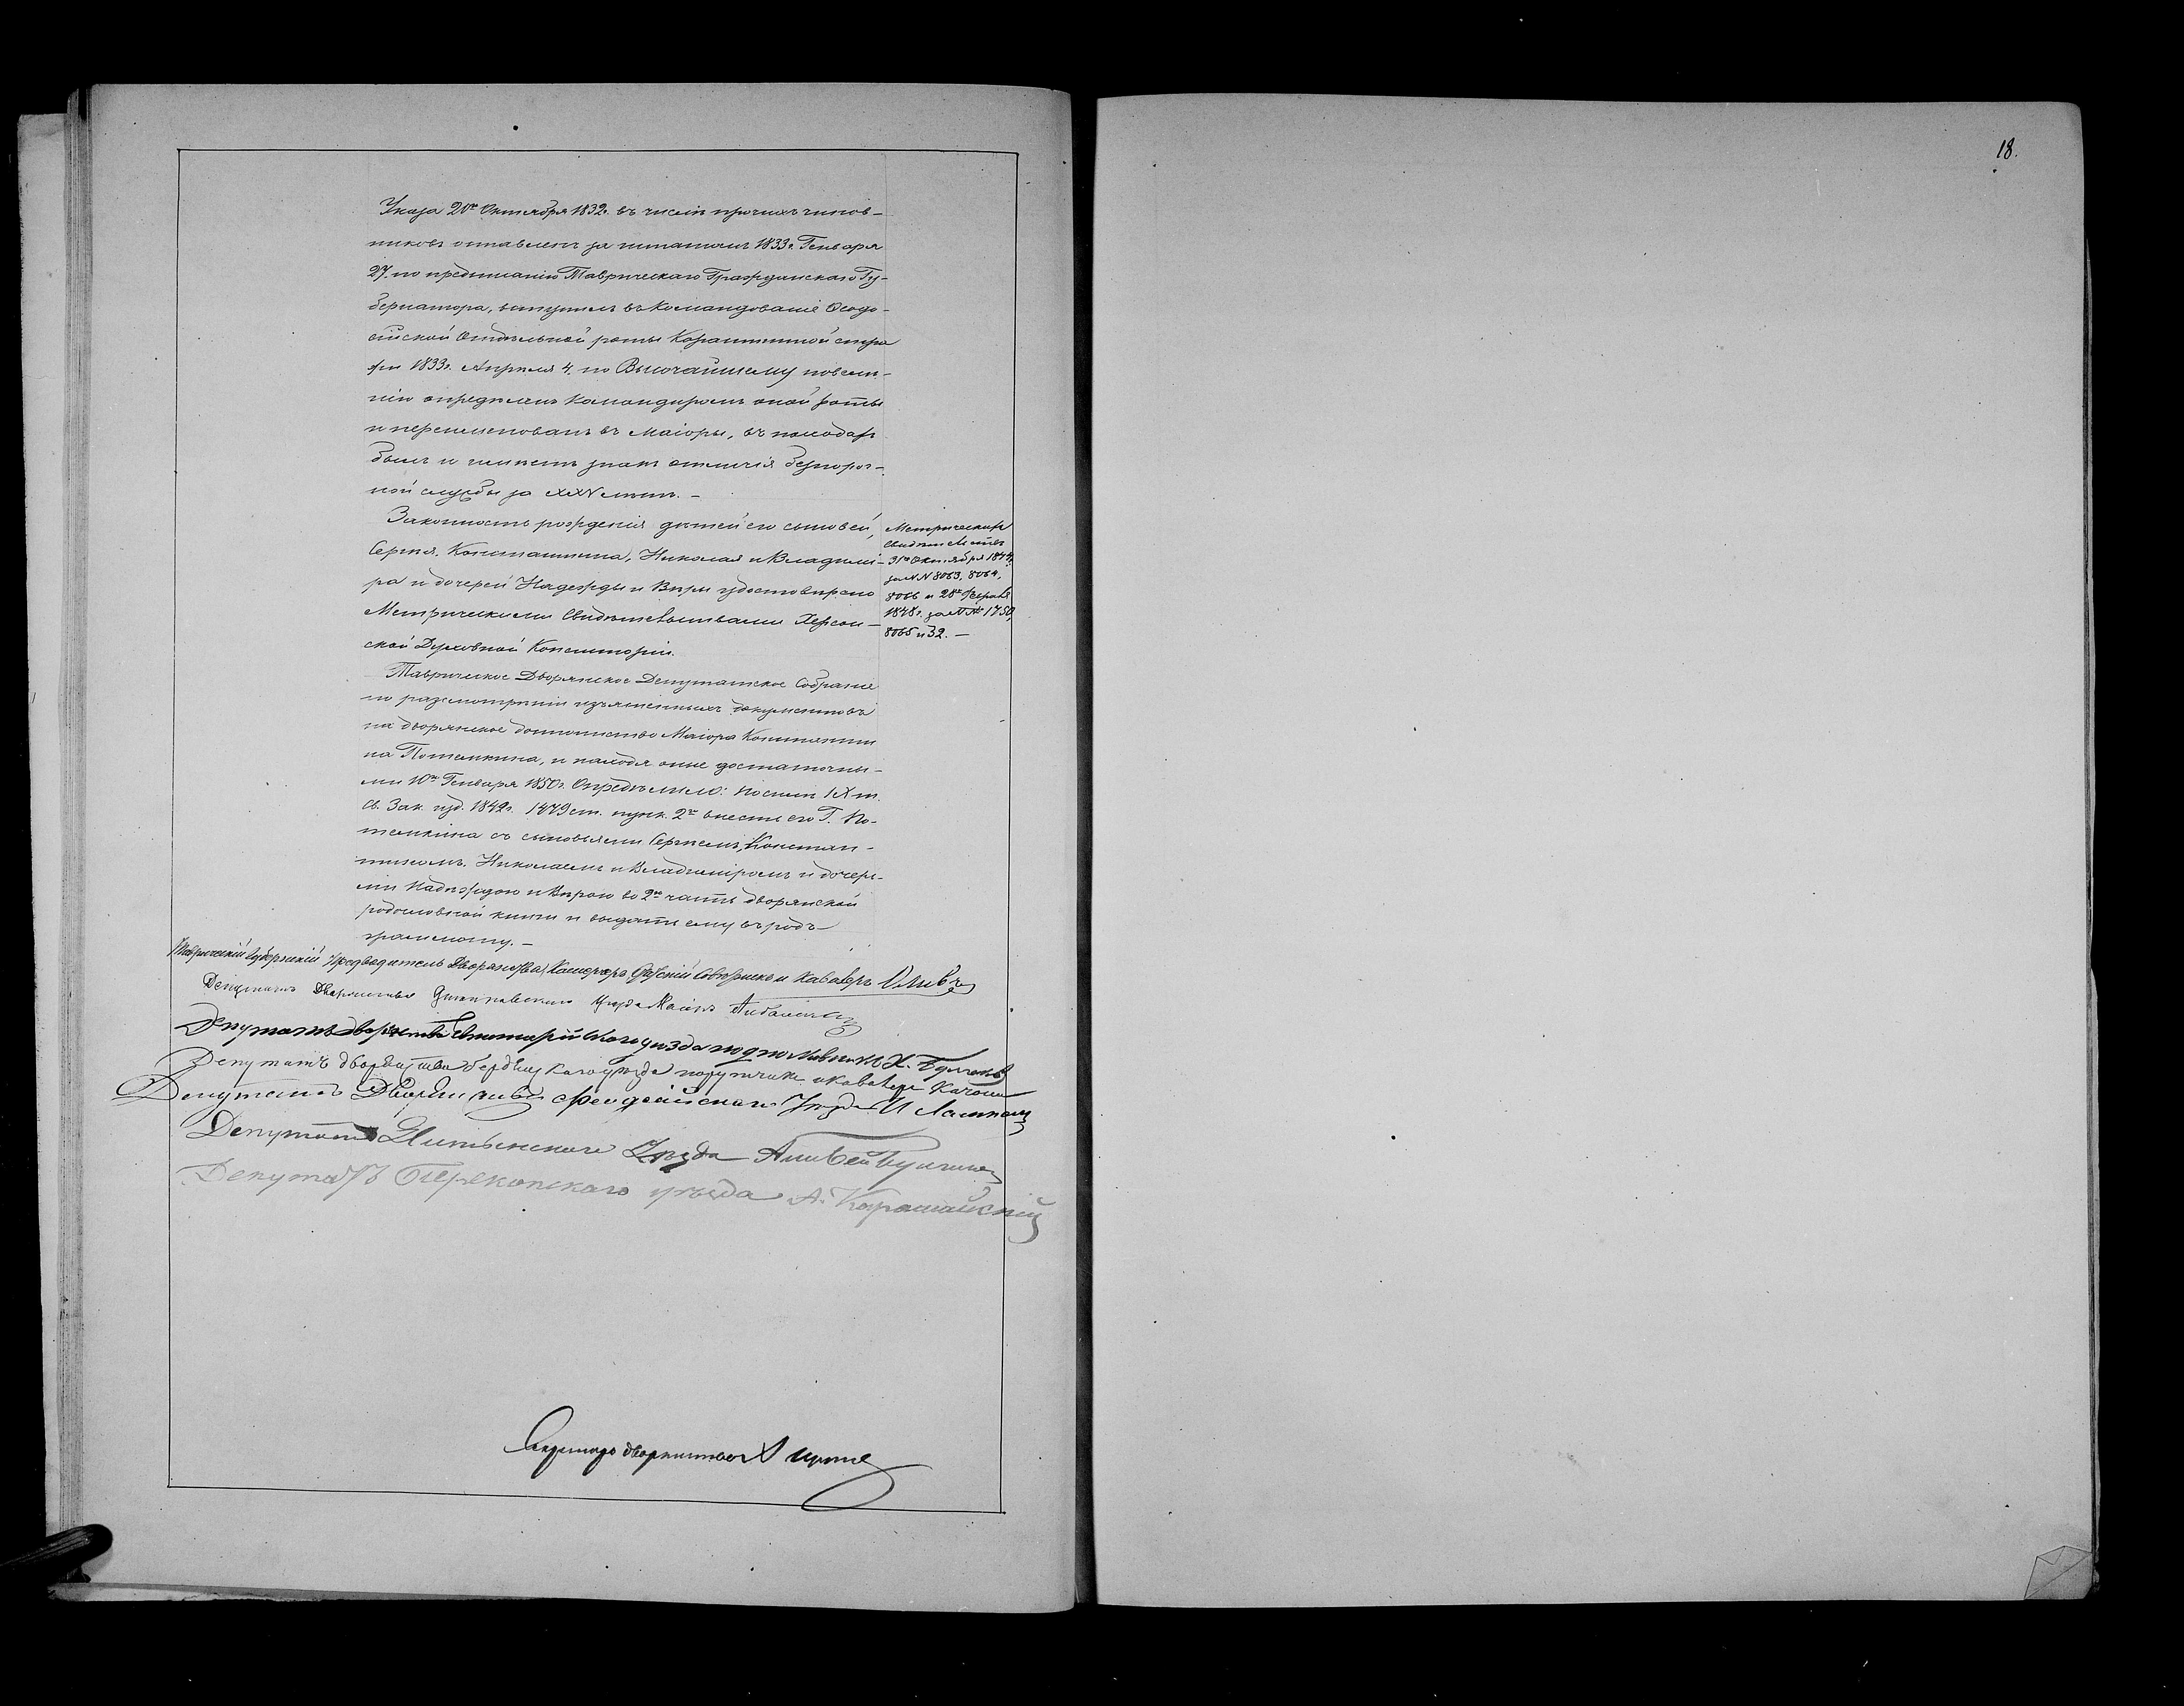 18.
Указа 20го Октября 1832г. въ числѣ прочихъ чинов-
никовъ оставленъ за штатомъ 1833г. Генваря
27. по предписанію Таврическаго Гражданскаго Гу-
бернатора, вступилъ въ Командованіе Ѳеодо-
сійской Отдѣльной роты Карантинной стра
жи 1833г. Апрѣля 4. по Высочайшему повелѣ-
нію опредѣленъ Командиромъ оной роты
и переименованъ въ Маіоры, въ походахъ
былъ и имѣетъ знакъ отличія безпороч-
ной службы за XXV лѣтъ. –
Законность рожденія дѣтей его сыновей,
Сергѣя, Константина, Николая и Владимі-
ра и дочерей Надежды и Вѣры удостовѣрено
Метрическими Свидѣтельствами Херсон-
ской Духовной Консисторіи.
Метрическія
Свидѣтельства
31го Октября
за NN 8063, 8064,
8066 и 28го Февраля
1848г. за № 1750,
8065 и 32. –
Таврическое Дворянское Депутатское Собраніе
по разсмотрѣніи изъясненныхъ документовъ
на дворянское достоинство Маіора Константи
на Потемкина, и находя оные достаточны-
ми 10го Генваря 1850г. Опредѣлило: по силѣ IX т.
Св. Зак. изд. 1842г. 1479 ст. пунк. 2го внести его Г. По-
темкина съ сыновьями Сергѣемъ, Констан-
тиномъ, Николаемъ и Владиміромъ и дочерь-
ми Надѣждою и Вѣрою во 2ю часть дворянской
родословной книги и выдать ему въ родъ
грамоту. –
Таврическій Губернскій Предводитель Дворянства, Камергеръ, Статскій Совѣтникъ и Кавалеръ Оливъ
Депутатъ Дворянства Днѣпровскаго Уѣзда Маіоръ
Депутатъ дворянства Евпаторійскаго уѣзда подполковникъ
Депутатъ дворянства Бердянскаго уѣзда поручикъ и кавалеръ
Депутатъ Дворянства Феодосійскаго Уѣзда
Депутатъ Ялтинскаго Уѣзда Али Бей Булгаковъ
Депутатъ Перекопскаго уѣзда А. Карашайскій
Секретарь дворянства